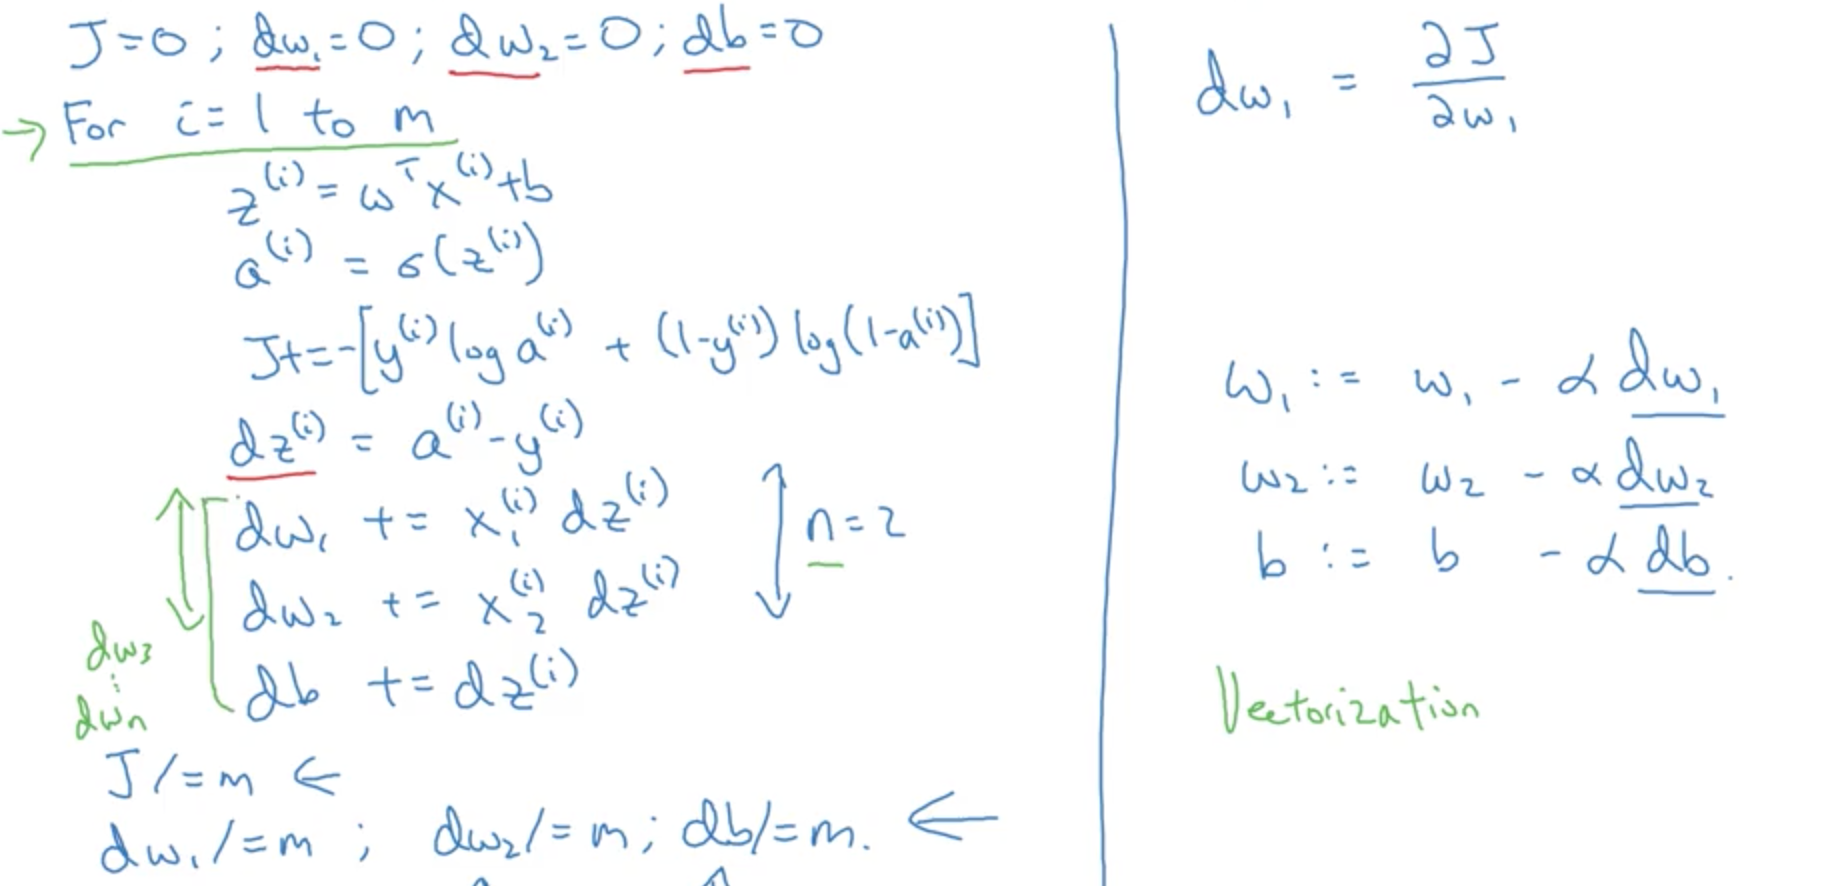 J=0 ; dw₁=0 ; dw₂=0 ; db=0
→ For i=1 to m
z⁽ⁱ⁾ = wᵀx⁽ⁱ⁾+b
a⁽ⁱ⁾ = σ(z⁽ⁱ⁾)
J+=-[y⁽ⁱ⁾ log a⁽ⁱ⁾ + (1-y⁽ⁱ⁾) log(1-a⁽ⁱ⁾)]
dz⁽ⁱ⁾ = a⁽ⁱ⁾-y⁽ⁱ⁾
dw₁ += x₁⁽ⁱ⁾ dz⁽ⁱ⁾
dw₂ += x₂⁽ⁱ⁾ dz⁽ⁱ⁾
n=2
db += dz⁽ⁱ⁾
dw₃
⋮
dwₙ
J/=m ←
dw₁/=m ; dw₂/=m ; db/=m. ←
dw₁ = ∂J/∂w₁
w₁ := w₁ - α dw₁
w₂ := w₂ - α dw₂
b := b - α db.
Vectorization